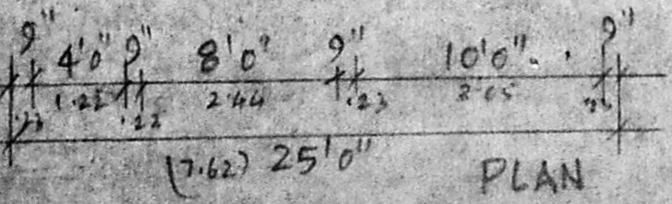 9" 4'0" 9" 8'0" 9" 10'0" 9"
.23 1.22 .22 2.44 .23 3.05
(7.62) 25'0"
PLAN